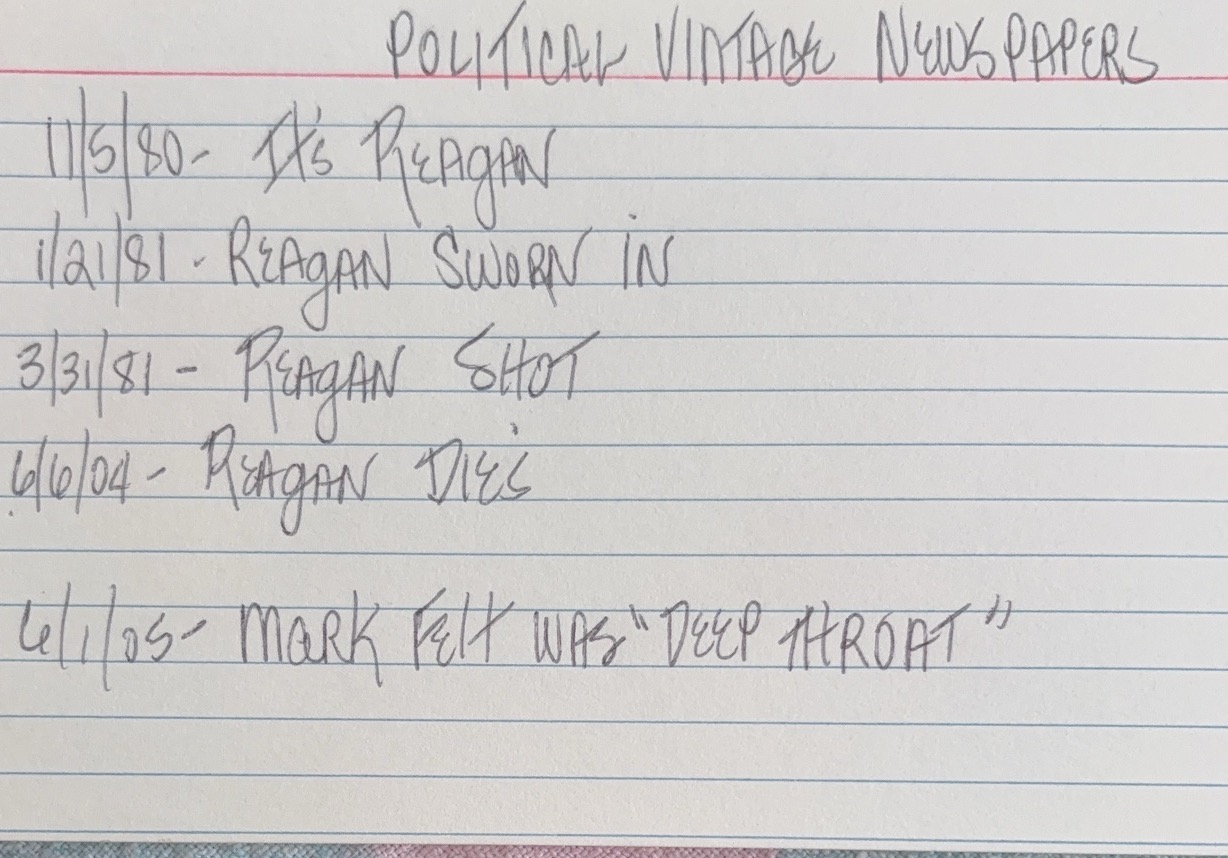 POLITICAL VINTAGE NEWSPAPERS
11/5/80- It's REAGAN
1/21/81 - REAGAN SWORN IN
3/31/81 - REAGAN SHOT
6/6/04 - REAGAN DIES
6/1/05- MARK FELT WAS "DEEP THROAT"